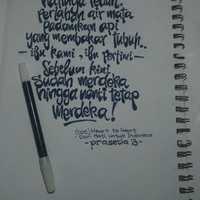 hatinya teduh..
Perahan air mata
padamkan api
yang membakar tubuh..
-ibu kami, ibu pertiwi-
Sebelum kini
Sudah merdeka
hingga nanti tetap
Merdeka!
Heart to Heart
Dari Hati Untuk Indonesia
-prasetia B-